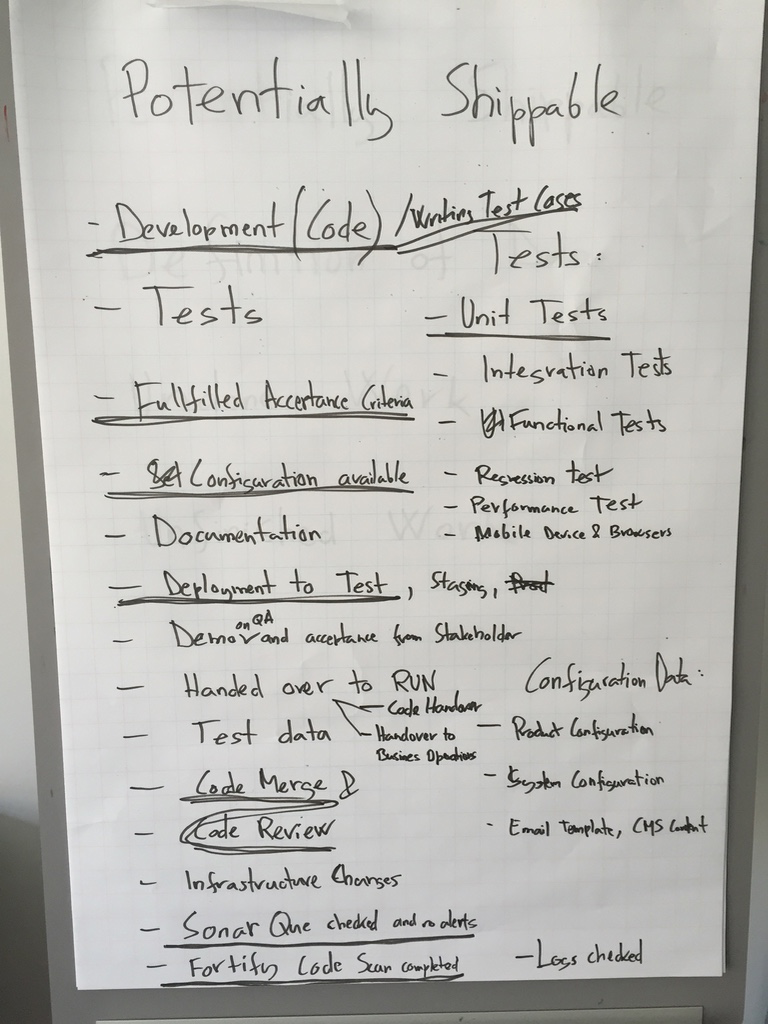 Potentially Shippable
- Development (Code) / Writing Test Cases
- Tests
- Fullfilled Acceptance Criteria
- Configuration available
- Documentation
- Deployment to Test, Staging, Prod
- Demo on QA and acceptance from Stakeholder
- Handed over to RUN
- Code Handover
- Handover to
Busines Operations
- Test data
- Code Merge &
- Code Review
- Infrastructure Changes
- Sonar Que checked and no alerts
- Fortify Code Scan completed
Tests:
- Unit Tests
- Integration Tests
- Functional Tests
- Regression test
- Performance Test
- Mobile Device & Browsers
Configuration Data:
- Product Configuration
- System Configuration
- Email Template, CMS Content
- Logs checked